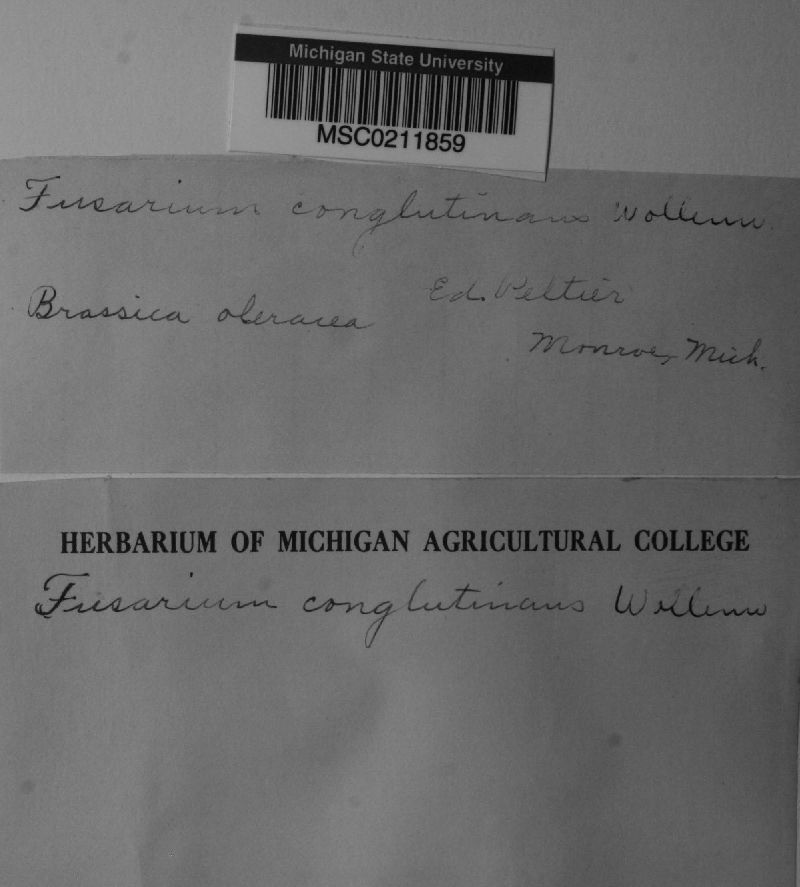 Michigan State University
MSC0211859
Fusarium conglutinans Wollenw.
Ed. Peltier
Brassica oleracea
Monroe, Mich.
HERBARIUM OF MICHIGAN AGRICULTURAL COLLEGE
Fusarium conglutinans Wollenw